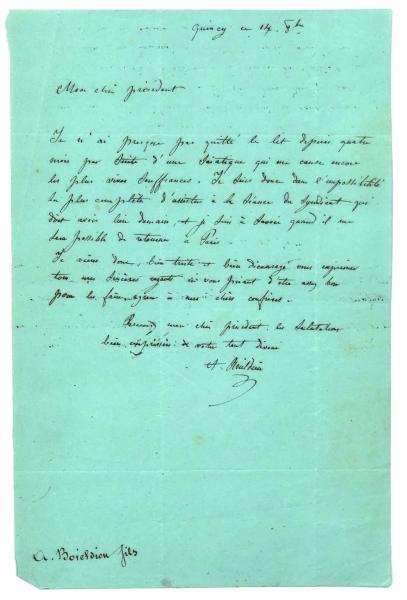 Quincy ce 14. 8bre
Mon cher président
Je n'ai presque pas quitté le lit depuis quatre
mois par suite d'une Sciatique qui me cause encore
les plus vives souffrances. Je suis donc dans l'impossibilité
la plus complète d'assister à la séance du Syndicat qui
doit avoir lieu demain, et je suis à savoir quand il me
sera possible de retourner à Paris.
Je viens donc, bien triste et bien découragé vous exprimer
tous mes sincères regrets en vous priant d'être assez bon
pour les faire agréer à nos chers confrères.
Recevez mon cher président les salutations
bien empressées de votre tout dévoué
A. Boieldieu
A. Boieldieu fils